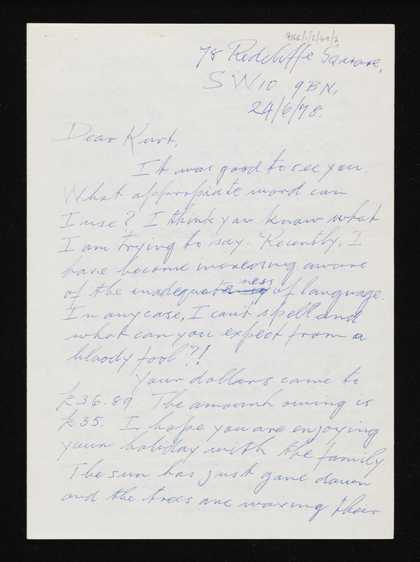 78 Redcliffe Square,
SW10 9BN,
24/6/78.
Dear Kurt,
It was good to see you.
What appropiate word can
I use? I think you know what
I am trying to say. Recently, I
have become increasing aware
of the inadequateness of language.
In any case, I can't spell and
what can you expect from a
bloody fool?!
Your dollars came to
£36.89. The amount owing is
£35. I hope you are enjoying
your holiday with the family
The sun has just gone down
and the trees are waving their